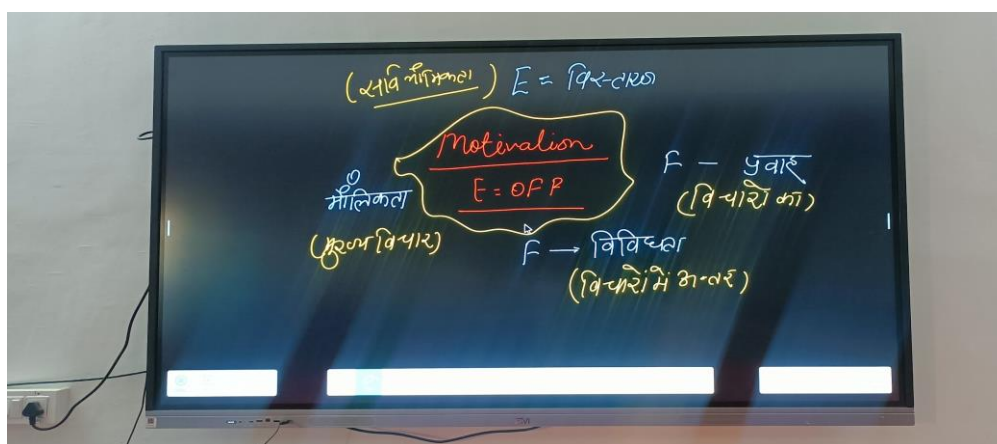 (सार्वभौमिकता) E = विस्तारण
Motivation
E = OFF
मौलिकता
(मुख्य विचार)
F - प्रवाह
(विचारो का)
F → विविधता
(विचारों में अन्तर)